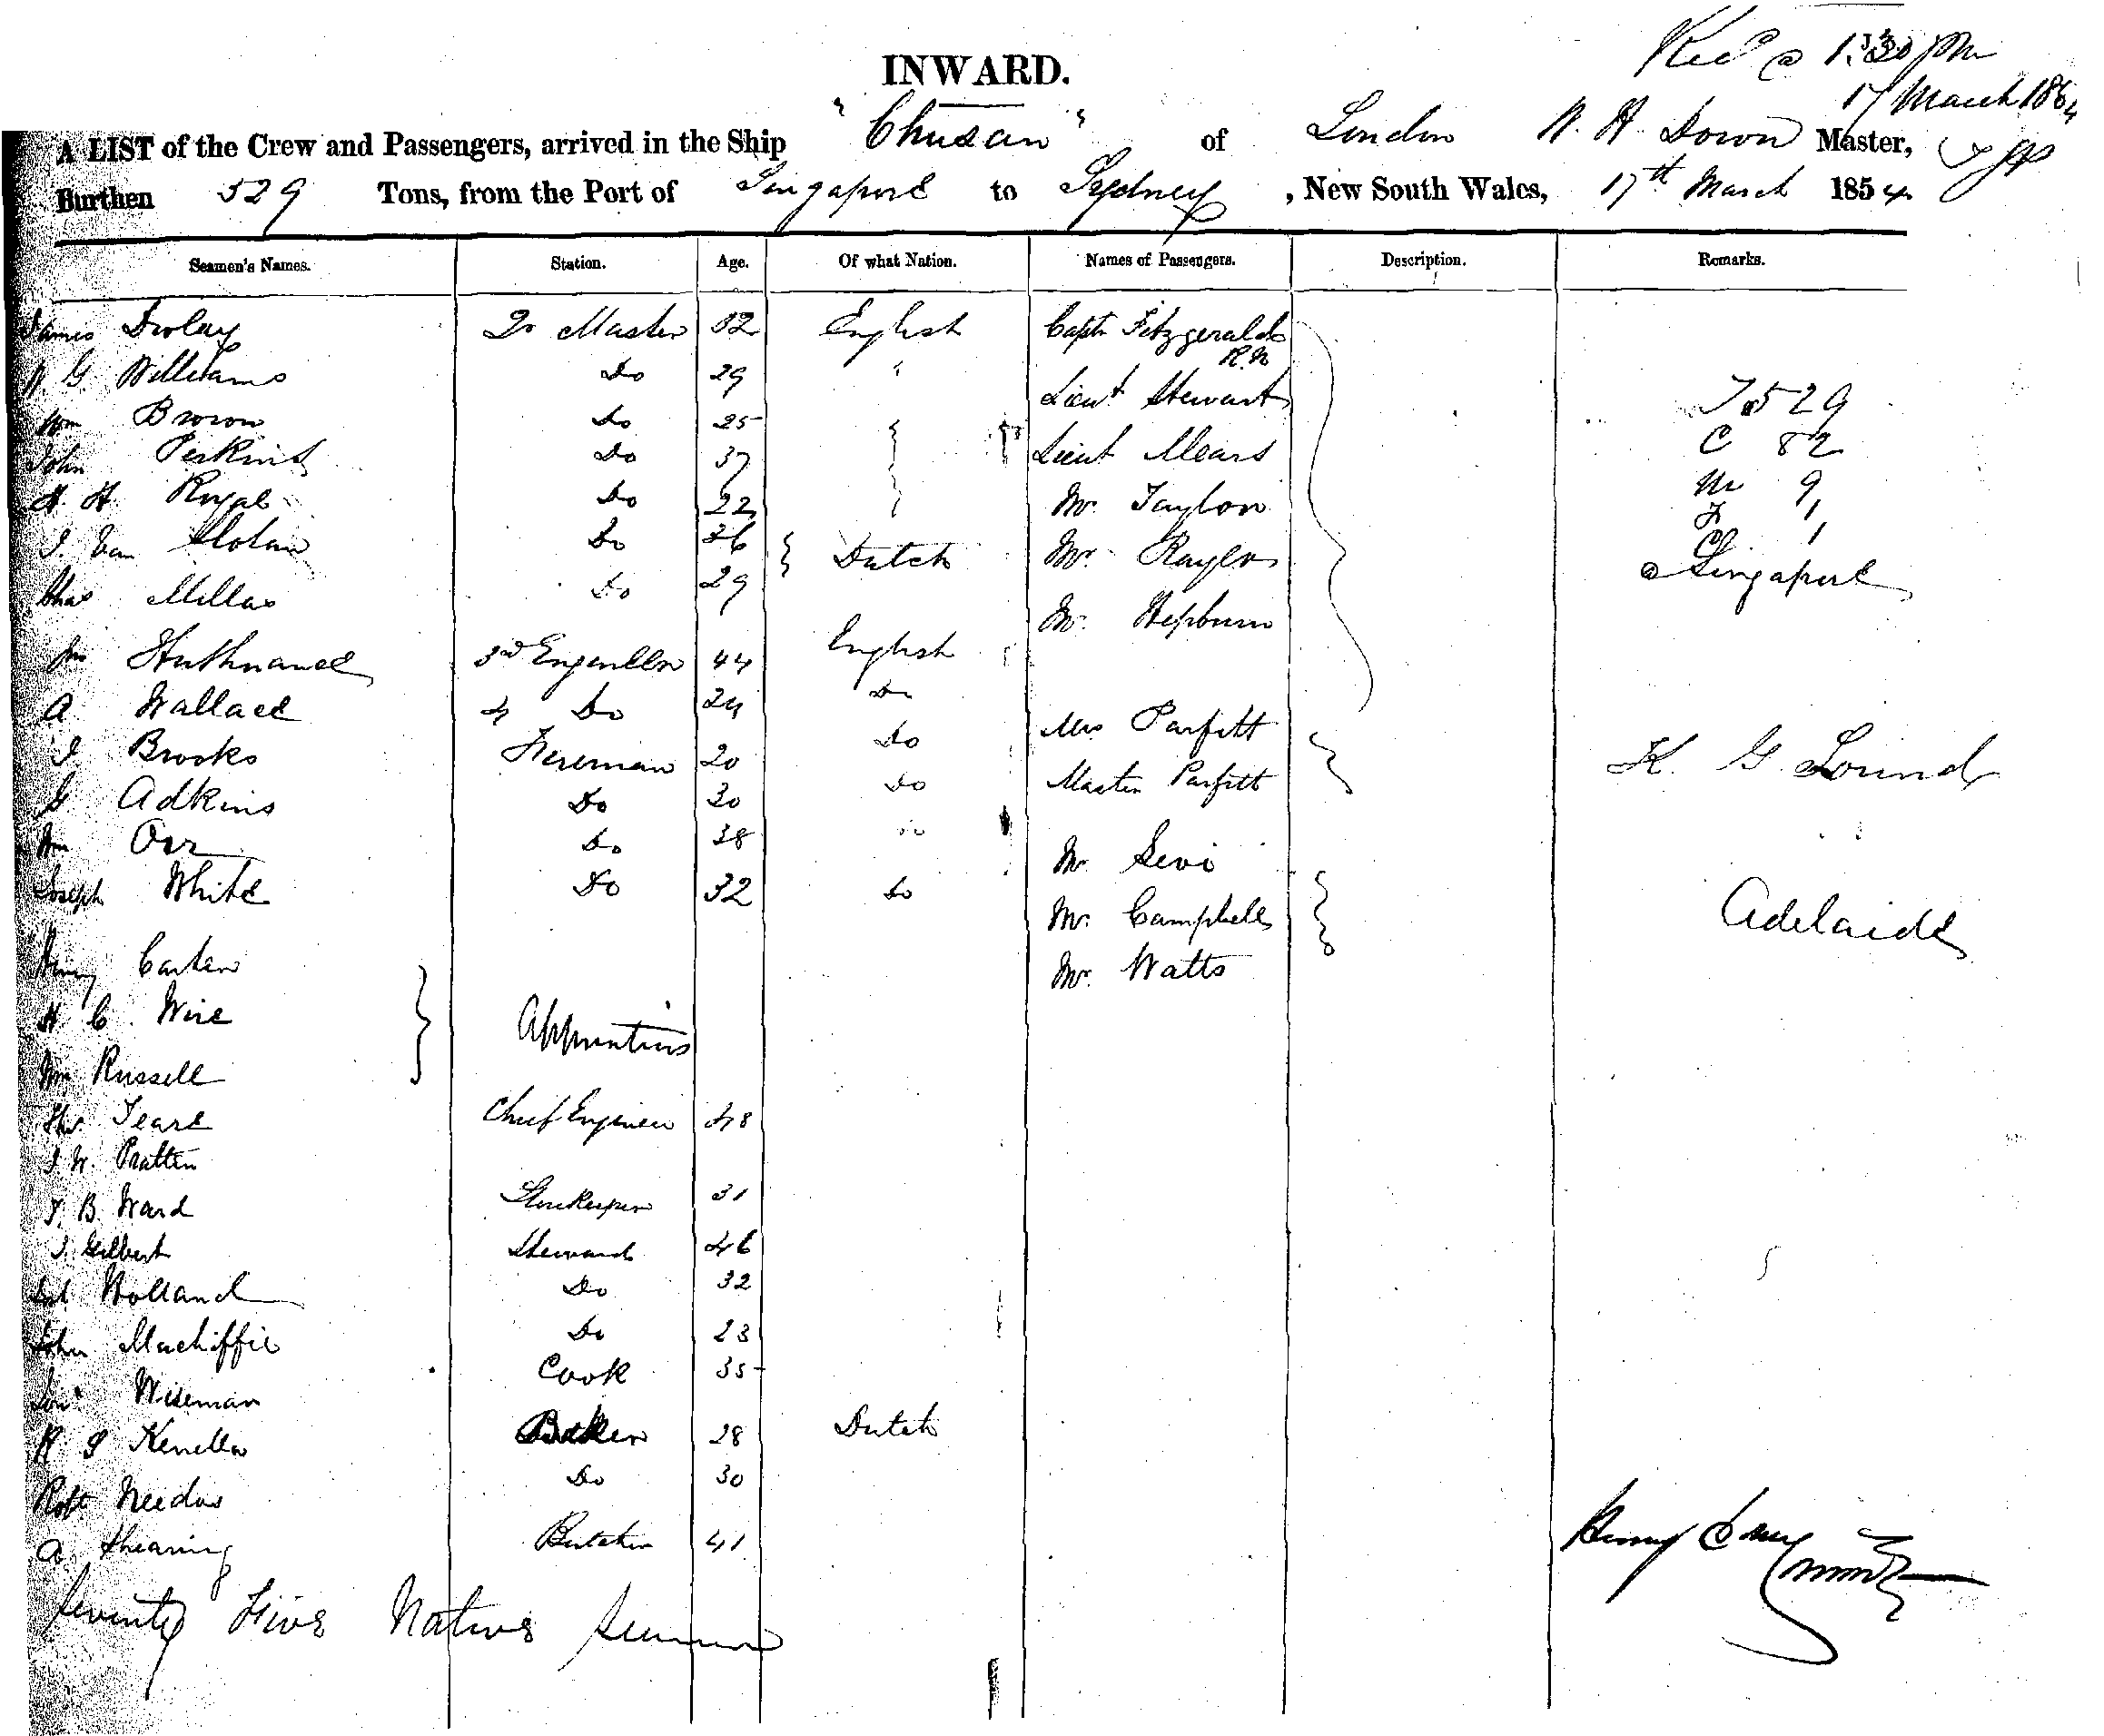 Recd @ 1.30 pm
17 March 1854
INWARD.
A LIST of the Crew and Passengers, arrived in the Ship "Chusan" of London W. H. Down Master,
Burthen 529 Tons, from the Port of Singapore to Sydney, New South Wales, 17th March 1854
Seamen's Names. Station. Age. Of what Nation. Names of Passengers. Description. Remarks.
James Qr Master English Captn Fitzgerald
R.N
G. Williams Do 29 " Lieut Stewart T 529
Wm Brown Do 25 C 82
John Perkins Do 37 Lieut Mears M 9
H. H. Royal Do 22 Mr. Taylor F 1
J. Van Do 36 Dutch Mr. C 1
Chas Millar Do 29 @ Singapore
Mr. Hepburn
Jno 3rd Engineer 44 English
A Wallace 4 Do 24 Do
J Brooks Fireman 20 Do Mrs Parfitt K. G. Sound
G Adkins Do 30 Do Master Parfitt
Wm Orr Do 38 Do
Mr. Levi
Joseph White Do 32 Do
Mr. Campbell Adelaide
Henry Carter
Mr. Watts
H. C. Wise Apprentices
Wm Russell
Thos. Teare Chief Engineer 48
J. W. Pratten
T. B. Ward Storekeeper 31
J. Gilbert Steward 46
Holland Do 32
John Machiffie Do 23
Wiseman Cook 35
Baker 28 Dutch
Robt Do 30
A. Shearing Butcher 41
Henry
Seventy Five Native Seamen